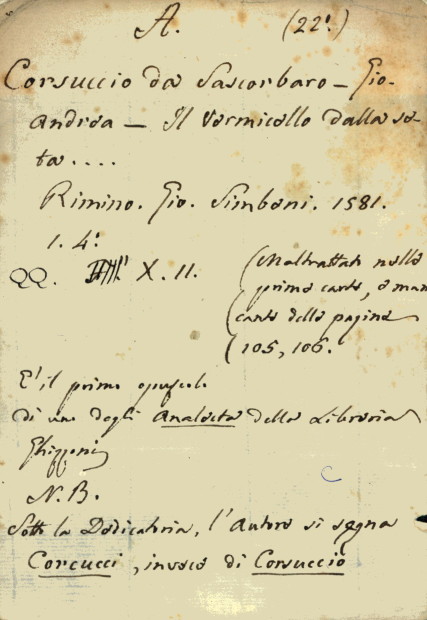 A. (22².)
Corsuccio da Sascorbaro – Gio.
Andrea – Il Vermicello dalla se-
ta....
Rimino. Gio. Simbeni. 1581.
1. 4.º
QQ. X. 11.
(Maltrattati nelle
prime carte, e man
cante delle pagine
105, 106.
E' il primo opuscolo
di uno degli Analecta della Libreria
Ghizzoni
N.B.
Sotto la Dedicatoria, l'Autore si segna
Corcucci, invece di Corsuccio